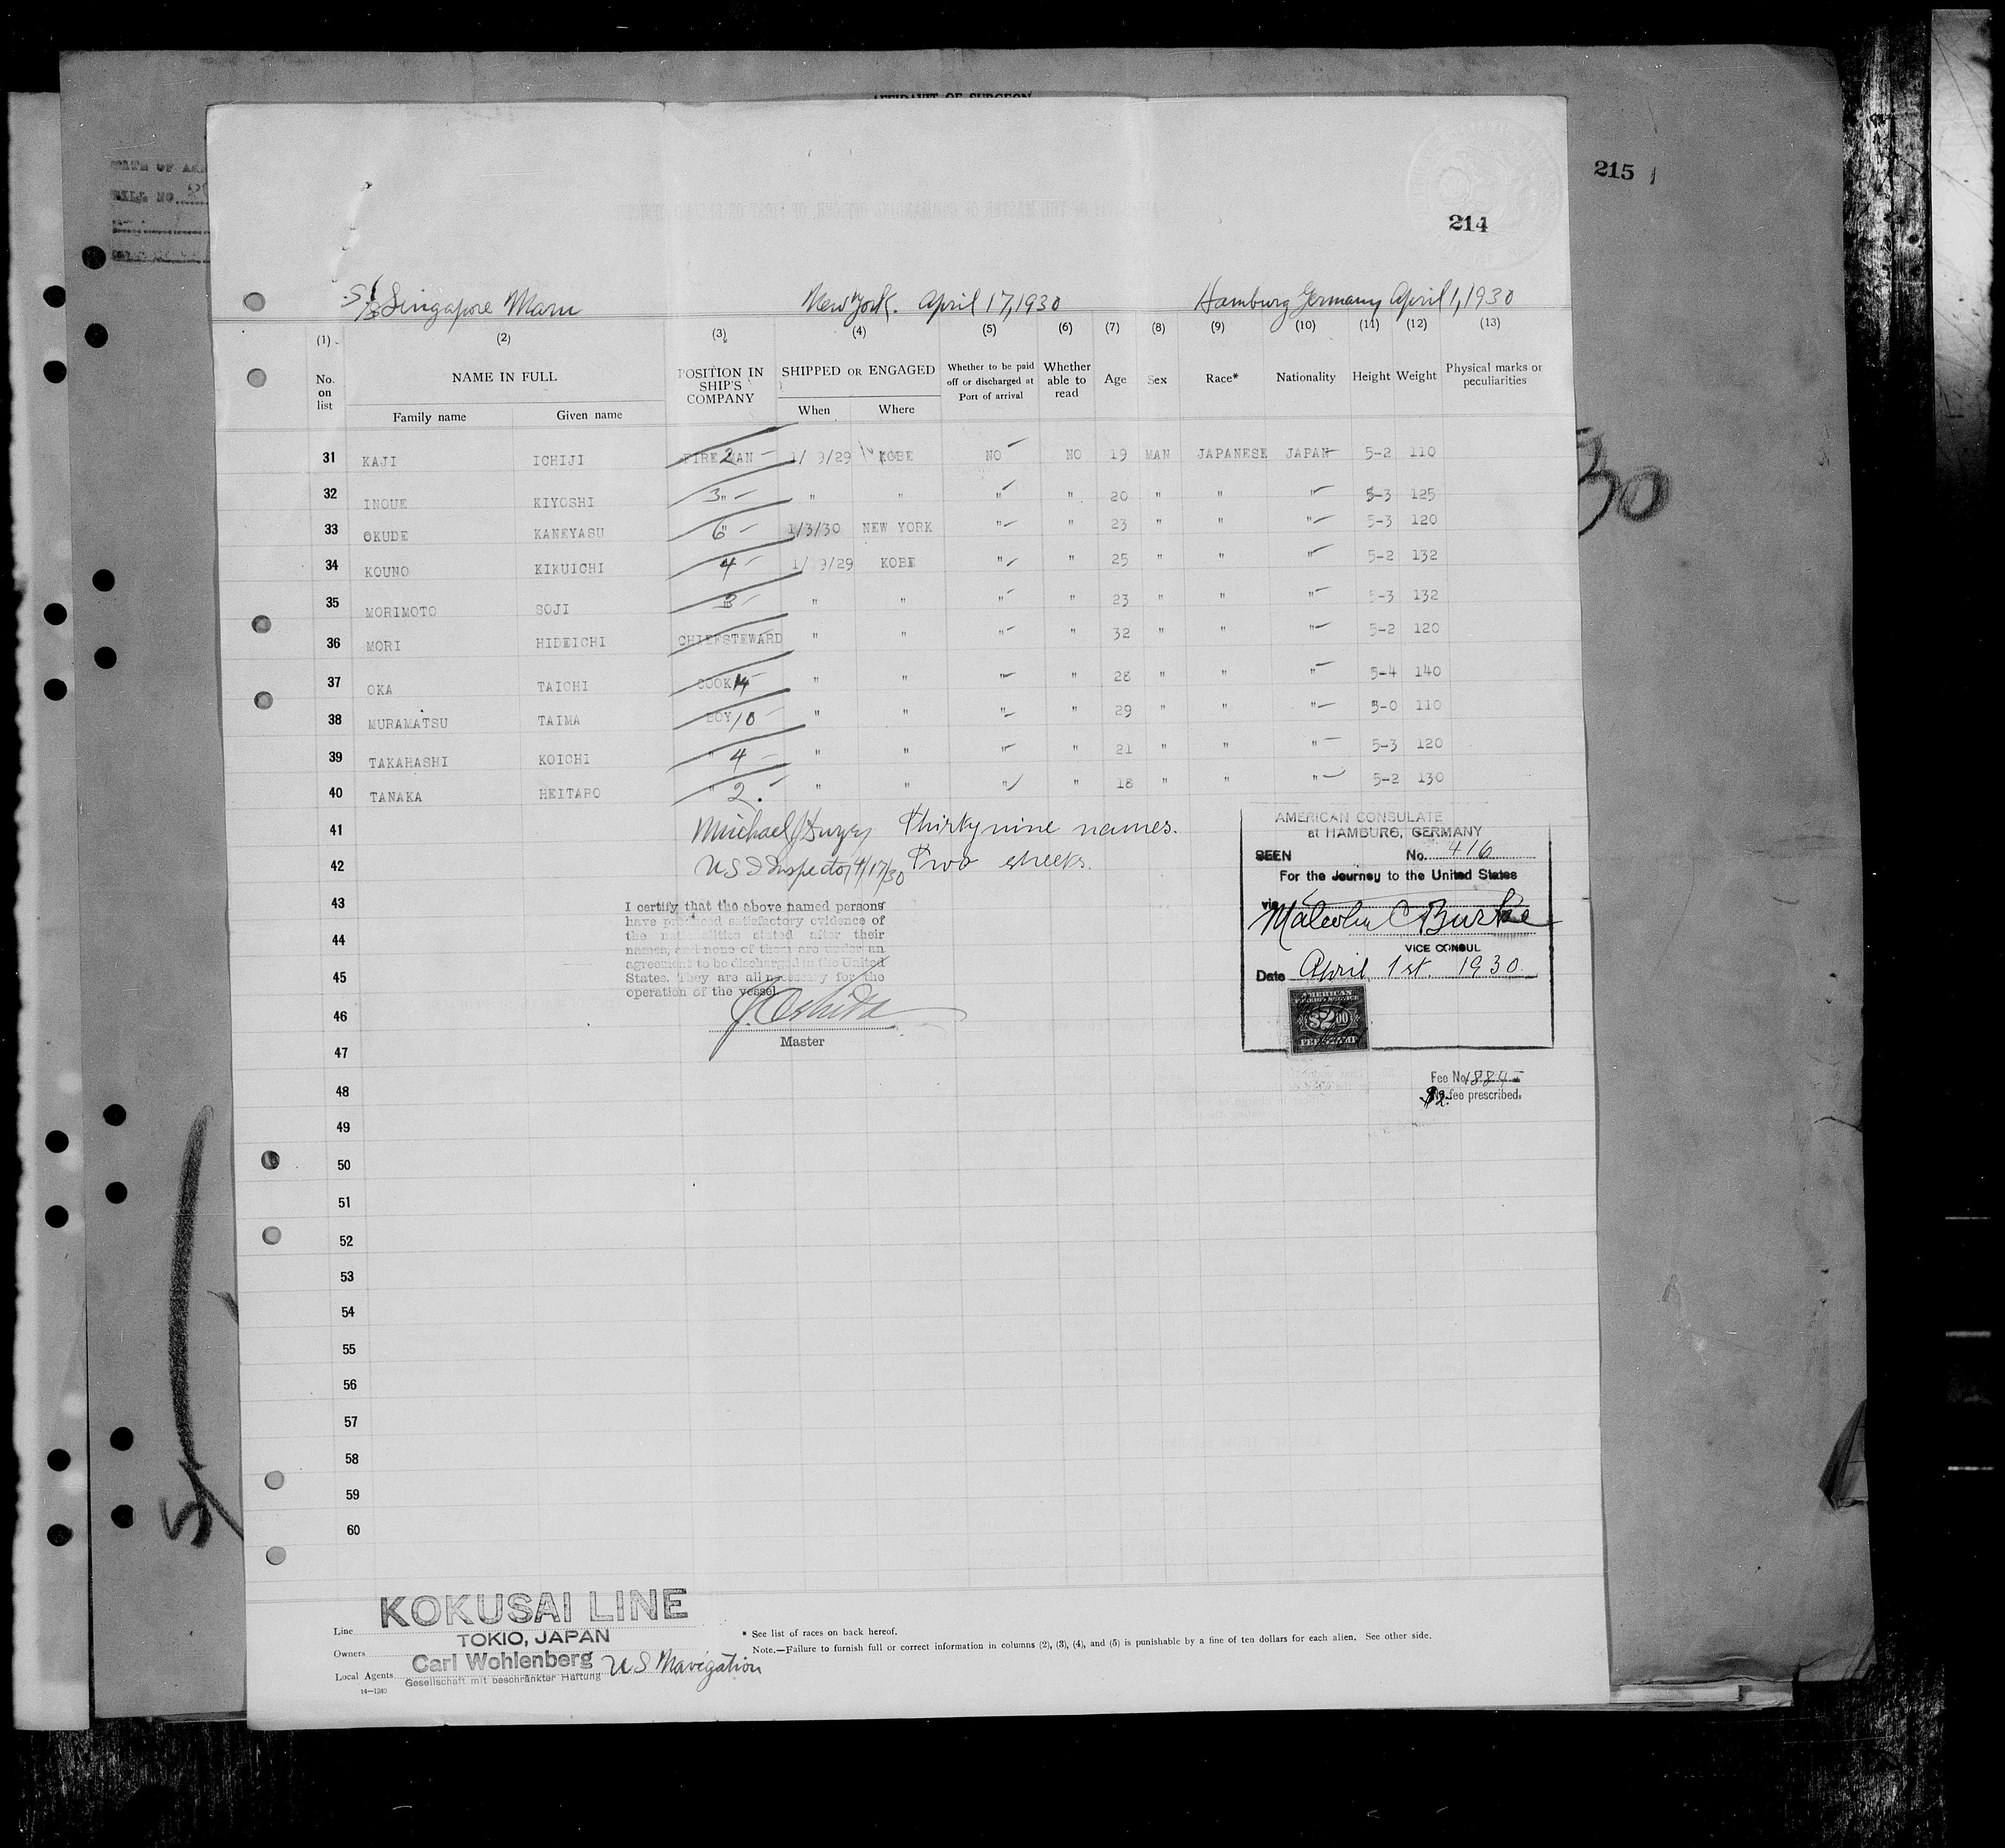 AFFIDAVIT OF SURGEON
215
214
S/S Singapore Maru New York. April 17, 1930 Hamburg Germany April 1, 1930
(1) (2) (3) (4) (5) (6) (7) (8) (9) (10) (11) (12) (13)
No. on list NAME IN FULL POSITION IN SHIP'S COMPANY SHIPPED OR ENGAGED Whether to be paid off or discharged at Port of arrival Whether able to read Age Sex Race* Nationality Height Weight Physical marks or peculiarities
Family name Given name When Where
31 KAJI ICHIJI FIREMAN 2 — 1/ 9/29 KOBE NO — NO 19 MAN JAPANESE JAPAN 5-2 110
32 INOUE KIYOSHI 3 " — " " " " 20 " " " — 5-3 125
33 OKUDE KANEYASU 6 " — 1/3/30 NEW YORK " — " 23 " " " — 5-3 120
34 KOUNO KIKUICHI 4 — 1/ 9/29 KOBE " " 25 " " " 5-2 132
35 MORIMOTO SOJI 3 — " " " " 23 " " " — 5-3 132
36 MORI HIDEICHI CHIEFSTEWARD " " " — " 32 " " " — 5-2 120
37 OKA TAICHI COOK 14 " " " — " 28 " " " — 5-4 140
38 MURAMATSU TAIMA BOY 10 — " " " — " 29 " " " — 5-0 110
39 TAKAHASHI KOICHI " 4 — " " " — " 21 " " " — 5-3 120
40 TANAKA HEITARO " 2. " " " " 18 " " " — 5-2 130
41 Michael J Dwyer Thirtynine names.
42 US I Inspector 4/17/30 Two sheets.
AMERICAN CONSULATE
at HAMBURG, GERMANY
SEEN No. 416
For the Journey to the United States
via
Malcolm C Burke
VICE CONSUL
Date April 1st. 1930
AMERICAN
FOREIGN SERVICE
$2.00
FEE STAMP
Fee No.
$2. No fee prescribed.
43
44
45
46
47
I certify that the above named persons
have produced satisfactory evidence of
the nationalities stated after their
names, and none of them are under an
agreement to be discharged in the United
States. They are all necessary for the
operation of the vessel
Master
48
49
50
51
52
53
54
55
56
57
58
59
60
Line KOKUSAI LINE
Owners TOKIO, JAPAN
Local Agents Carl Wohlenberg US Navigation
Gesellschaft mit beschränkter Haftung
14—1240
* See list of races on back hereof.
Note.—Failure to furnish full or correct information in columns (2), (3), (4), and (5) is punishable by a fine of ten dollars for each alien. See other side.